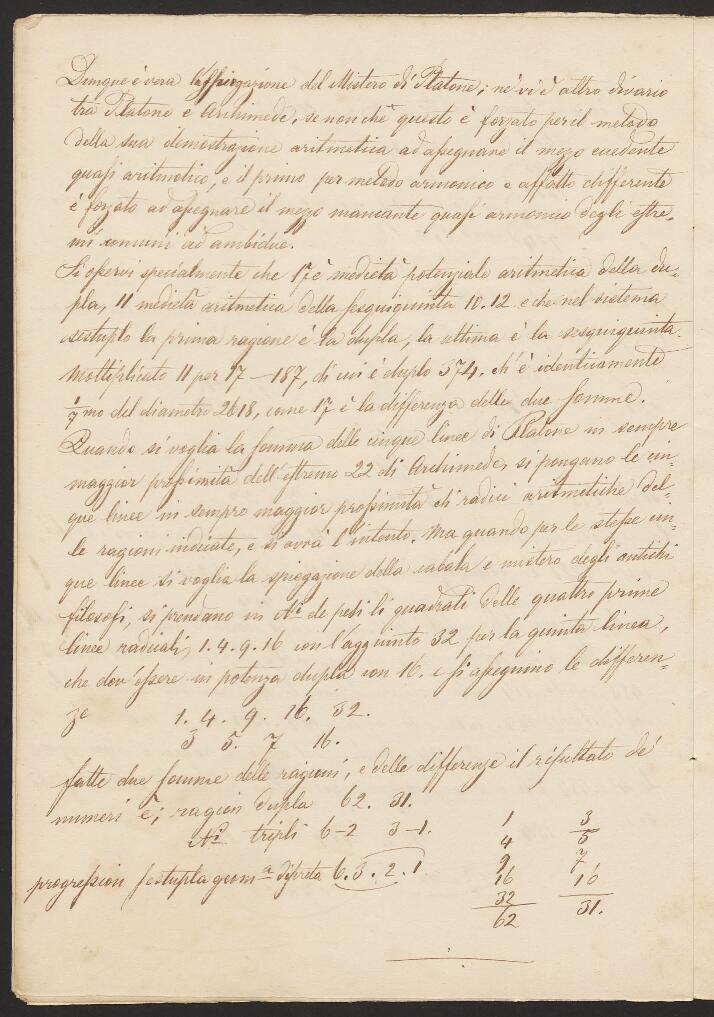 Dunque è vera la spiegazione del Mistero di Platone; nè vi è altro divario
trà Platone e Archimede, se non chè questo è forzato per il metodo
della sua dimostrazione aritmetica ad assegnare il mezo eccedente
quasi aritmetico, e il primo per metodo armonico e affatto differente
è forzato ad assegnare il mezo mancante quasi armonico degli estre-
mi comuni ad ambidue.
Si osservi specialmente che 17 è medietà potenziale aritmetica della du-
pla, 11 medietà aritmetica della sesquiquinta 10.12 e che nel sistema
sestuplo la prima ragione è la dupla, la ultima è la sesquiquinta.
Moltiplicato 11 per 17 — 187, di cui è duplo 374. ch'è identicamente
1/7 mo del diametro 2618, come 17 è la differenza delle due somme.
Quando si voglia la somma delle cinque linee di Platone in sempre
maggior prossimità dell'estremo 22 di Archimede, si pongano le cin-
que linee in sempre maggior prossimità di radici aritmetiche del-
le ragioni indicate, e si avrà l'intento. Ma quando per le stesse cin-
que linee si voglia la spiegazione della cabala e mistero degli antichi
filosofi, si prendano in Ni de pesi li quadrati delle quattro prime
linee radicali, 1. 4. 9. 16 con l'aggiunto 32 per la quinta linea,
che dov'essere in potenza dupla con 16. e si assegnino le differen-
ze 1. 4. 9. 16. 32.
3 5. 7 16.
fatte due somme delle ragioni, e delle differenze il risultato de'
numeri è; ragion dupla 62. 31.
Ni tripli 6-2 3-1.
progression sestupla geoma discreta 6. 3. 2. 1
1 3
4 5
9 7
16 16
32
62 31.